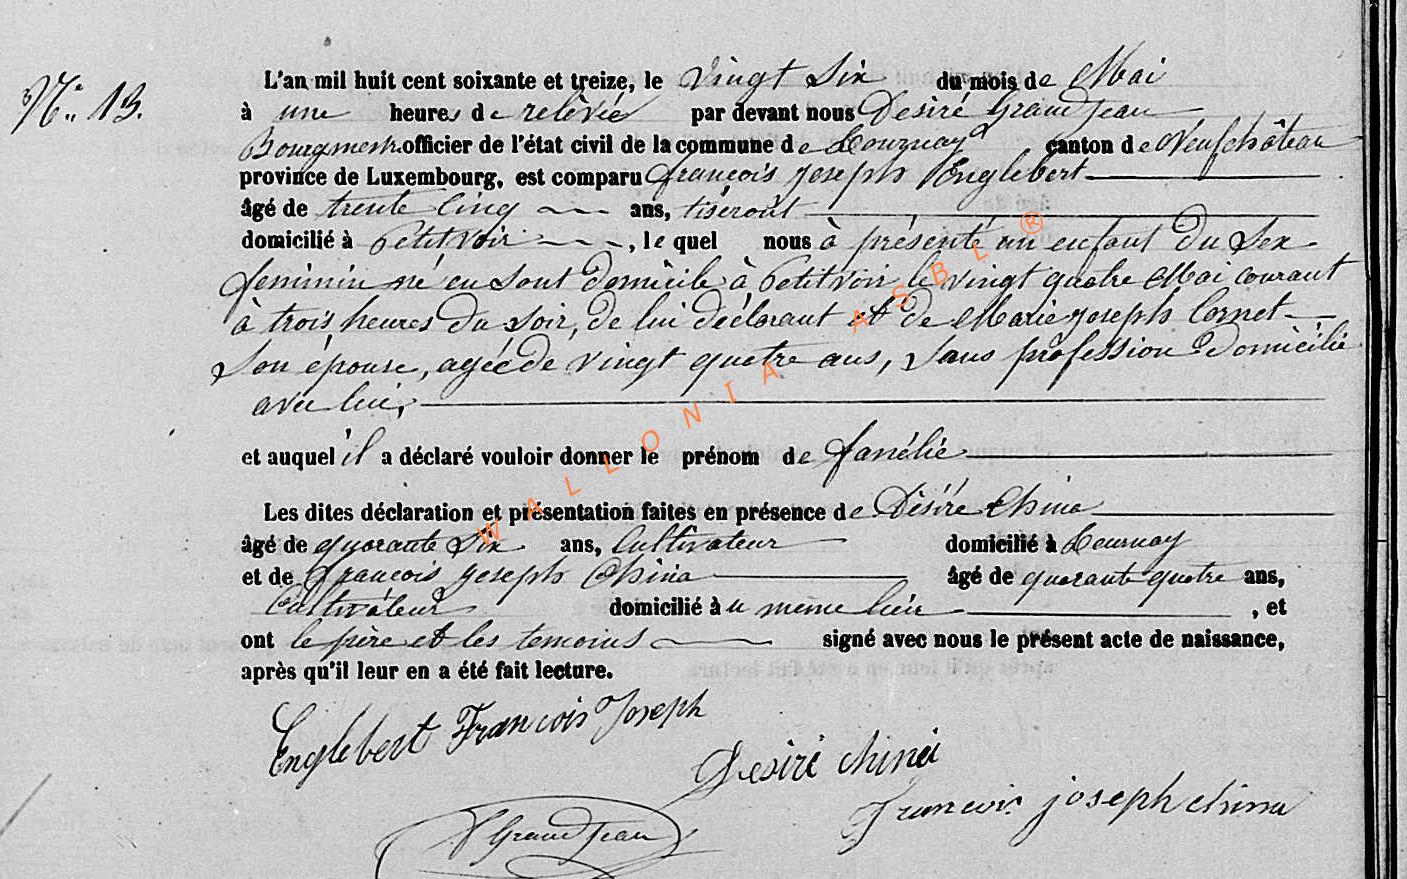 N° 13.
L'an mil huit cent soixante et treize, le vingt six du mois de Mai
à une heures de relévée par devant nous Desiré Grandjean
Bourgmestre officier de l'état civil de la commune de Tournay canton de Neufchâteau
province de Luxembourg, est comparu françois joseph Englebert
âgé de trente cinq ans, tiseront
domicilié à Petitvoir, le quel nous à présenté un enfant du sex
feminin né en sont domicile à Petitvoir le vingt quatre Mai courant
à trois heures du soir, de lui déclarant et de Marie joseph Cornet
son épouse, agée de vingt quatre ans, sans profession domicilié
avec lui,
et auquel il a déclaré vouloir donner le prénom de
Les dites déclaration et présentation faites en présence de Désiré China
âgé de quarante six ans, Cultivateur domicilié à Tournay
et de françois joseph China âgé de quarante quatre ans,
Cultivateur domicilié au même lieu, et
ont le père et les temoins signé avec nous le présent acte de naissance,
après qu'il leur en a été fait lecture.
Englebert François Joseph
Desiré chinà
francois joseph china
GrandJean
WALLONIA ASBL ®